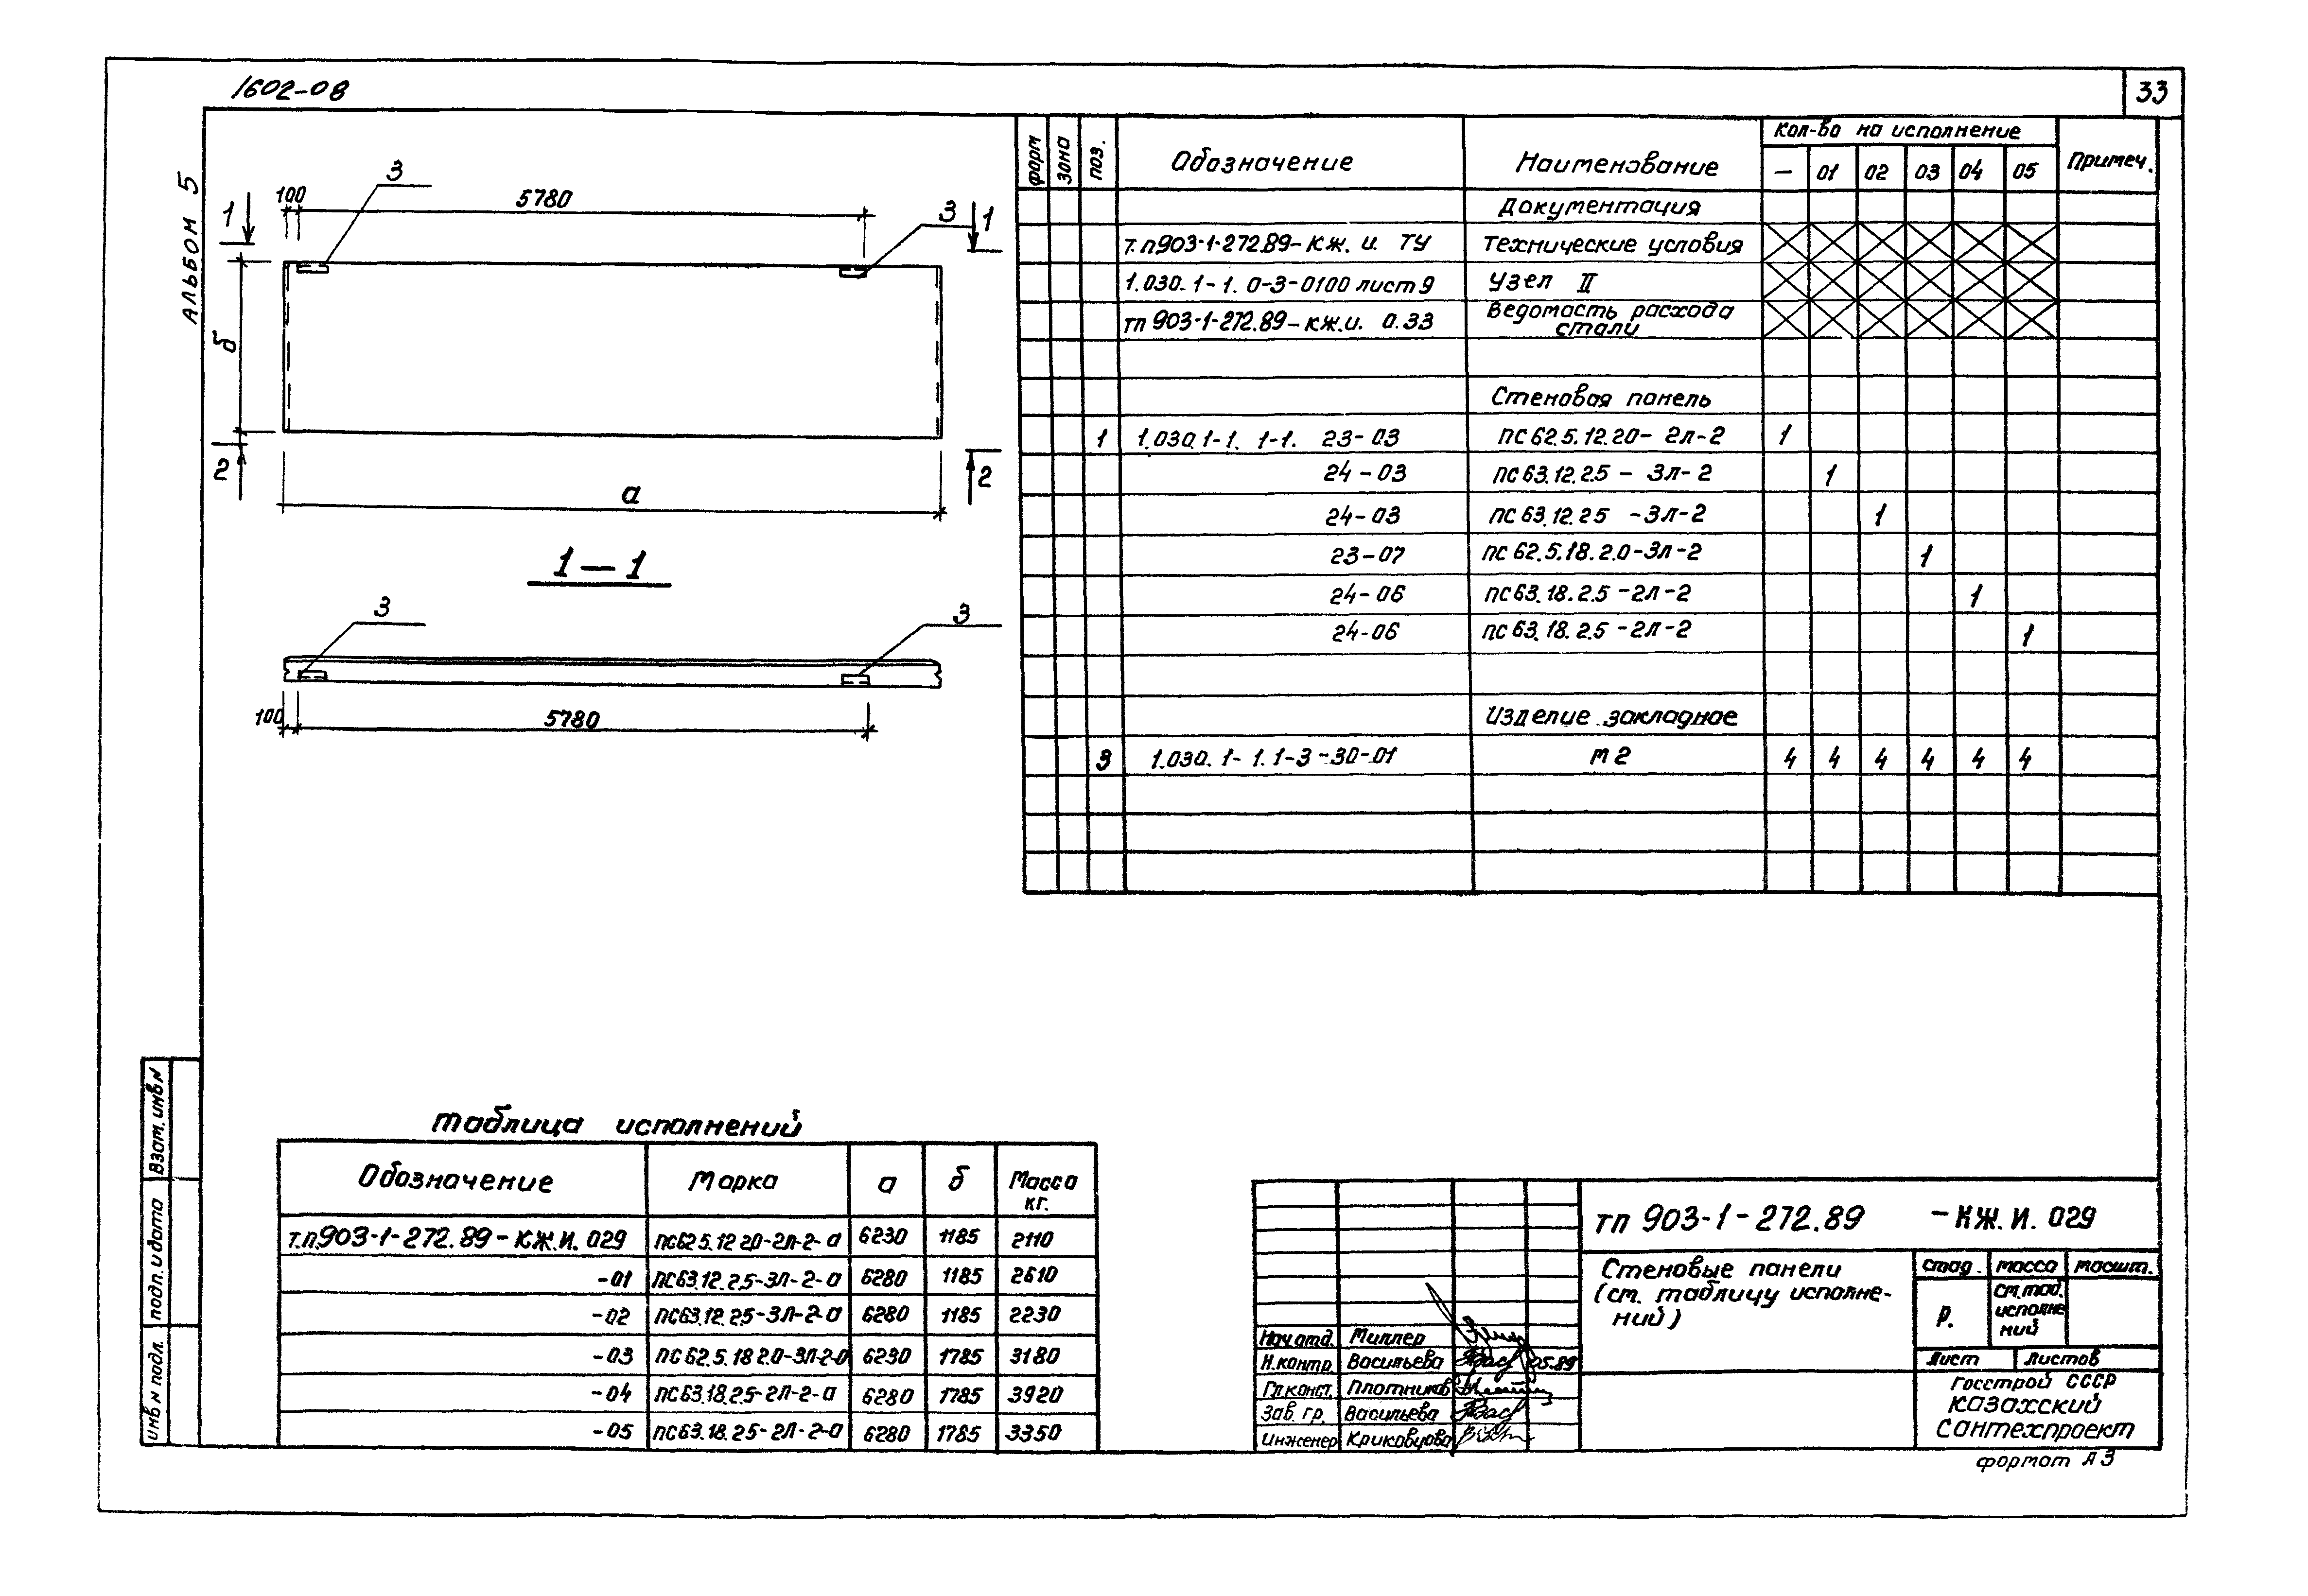 1602-08
33
АЛЬБОМ 5
100
5780
3
3
1
1
б
2
2
а
1-1
3
3
100
5780
форм
зона
поз.
Обозначение
Наименование
Кол-во на исполнение
Примеч.
— 01 02 03 04 05
Документация
т.п903-1-272.89-КЖ.И. ТУ Технические условия
1.030.1-1. 0-3-0100 лист 9 Узел II
тп 903-1-272.89-КЖ.И. 0.33 Ведомость расхода
стали
Стеновая панель
1 1.030.1-1. 1-1. 23-03 ПС 62.5.12.20-2л-2 1
24-03 ПС 63.12.2.5-3л-2 1
24-03 ПС 63.12.25-3л-2 1
23-07 ПС 62.5.18.2.0-3л-2 1
24-06 ПС 63.18.2.5-2л-2 1
24-06 ПС 63.18.2.5-2л-2 1
Изделие закладное
3 1.030.1-1.1-3-30-01 М2 4 4 4 4 4 4
Таблица исполнений
Обозначение Марка а б Масса
кг.
т.п.903-1-272.89-КЖ.И. 029 ПС62 5.12 2.0-2Л-2-а 6230 1185 2110
-01 ПС63.12.2.5-3Л-2-а 6280 1185 2610
-02 ПС63.12.25-3Л-2-а 6280 1185 2230
-03 ПС62.5.18 2.0-3Л-2-а 6230 1785 3180
-04 ПС63.18.25-2Л-2-а 6280 1785 3920
-05 ПС63.18.25-2Л-2-а 6280 1785 3350
Взам. инв №
подп. и дата
инв № подл.
тп 903-1-272.89 -КЖ.И. 029
Стеновые панели
(см. таблицу исполне-
ний)
стад. масса масшт.
Р.
см. таб.
исполне
ний
Лист Листов
Госстрой СССР
Казахский
Сантехпроект
Нач отд. Миллер
Н.контр. Васильева 05.89
Гл.конст. Плотников
Зав. гр. Васильева
Инженер Криковцова
формат А3